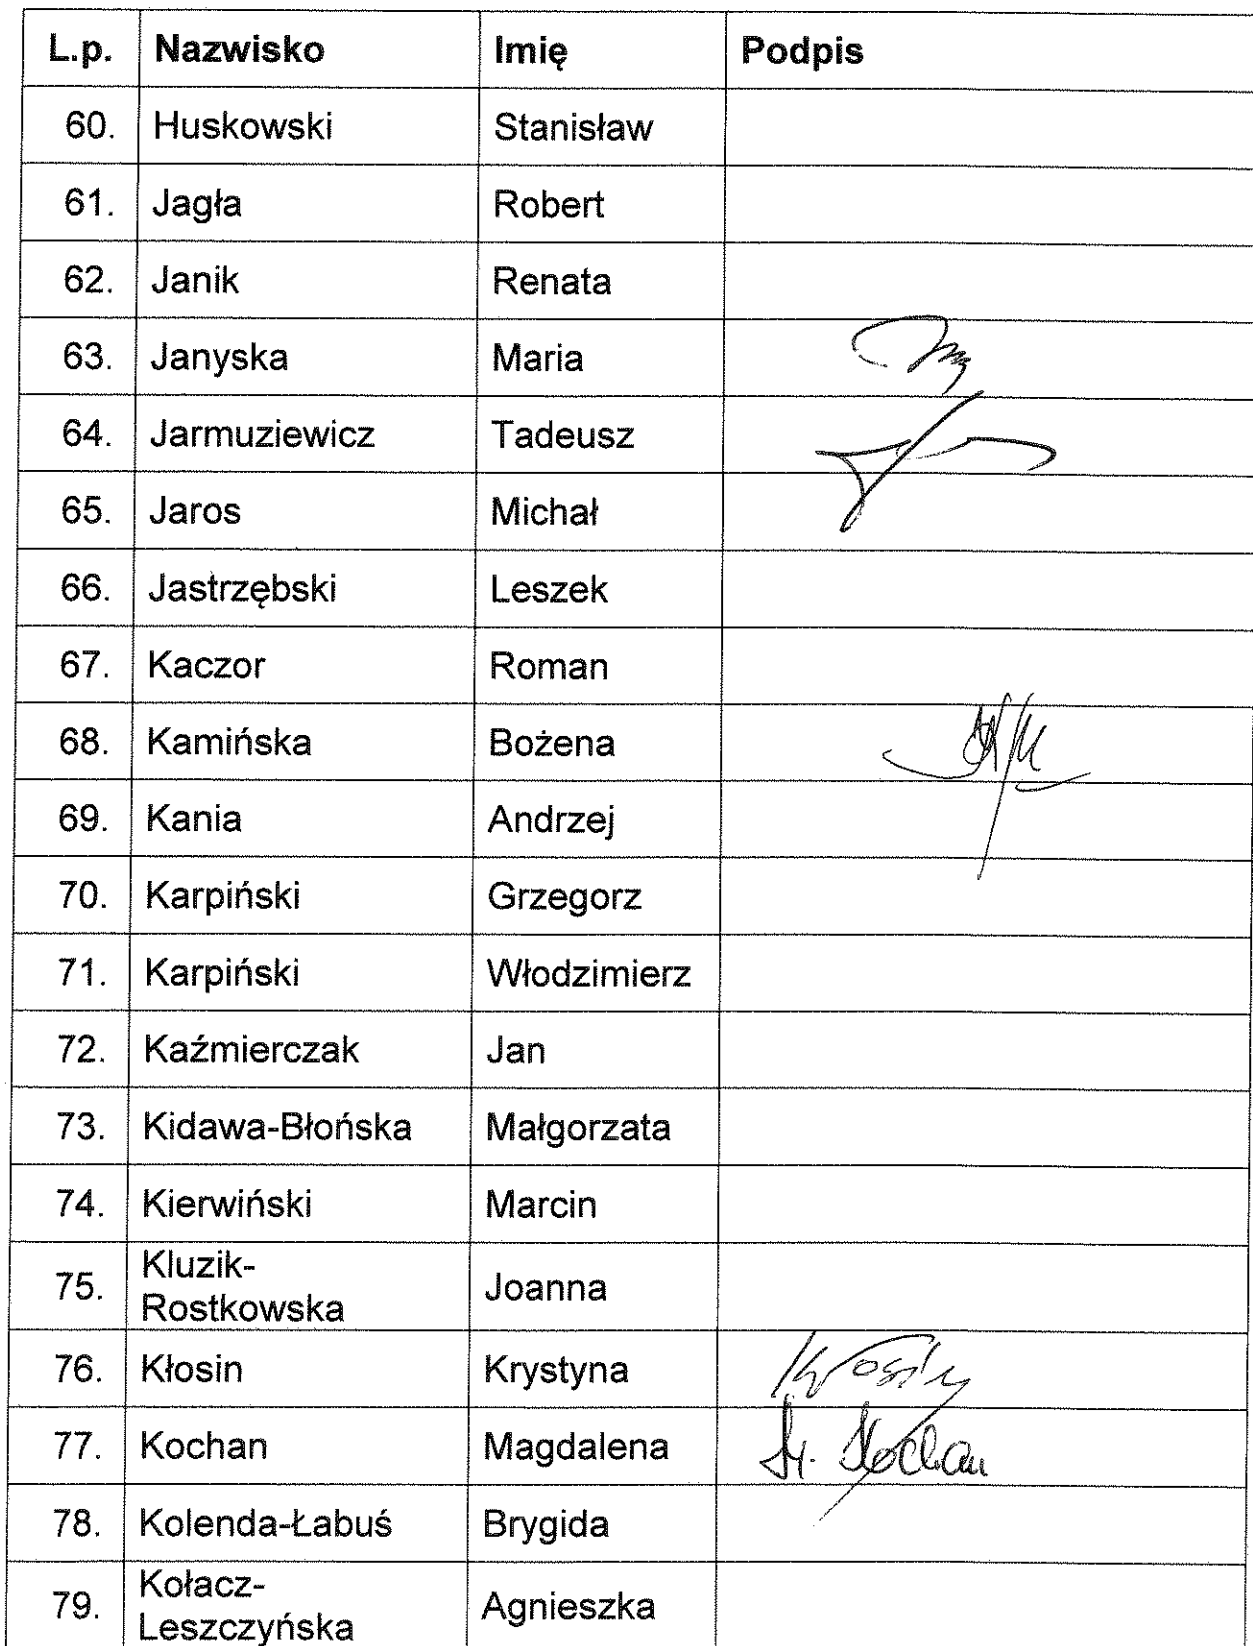 L.p. Nazwisko Imię Podpis
60. Huskowski Stanisław
61. Jagła Robert
62. Janik Renata
63. Janyska Maria
64. Jarmuziewicz Tadeusz
65. Jaros Michał
66. Jastrzębski Leszek
67. Kaczor Roman
68. Kamińska Bożena
69. Kania Andrzej
70. Karpiński Grzegorz
71. Karpiński Włodzimierz
72. Kaźmierczak Jan
73. Kidawa-Błońska Małgorzata
74. Kierwiński Marcin
75. Kluzik-
Rostkowska Joanna
76. Kłosin Krystyna
77. Kochan Magdalena Kochan
78. Kolenda-Łabuś Brygida
79. Kołacz-
Leszczyńska Agnieszka